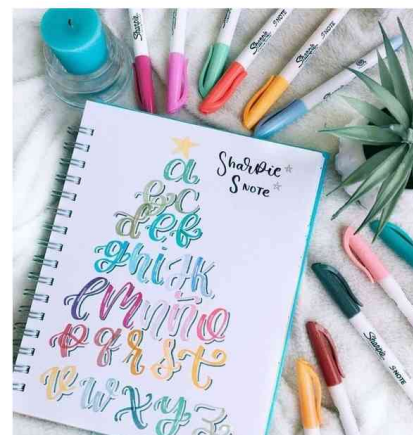 Sharpie S·NOTE
Sharpie S·NOTE
Sharpie S·NOTE
Sharpie
Sharpie S·NOTE
SharPie
S NOTE
a
bc
def
ghijk
lmnño
pqrst
vwxyz
Sharpie S·NOTE
Sharpie